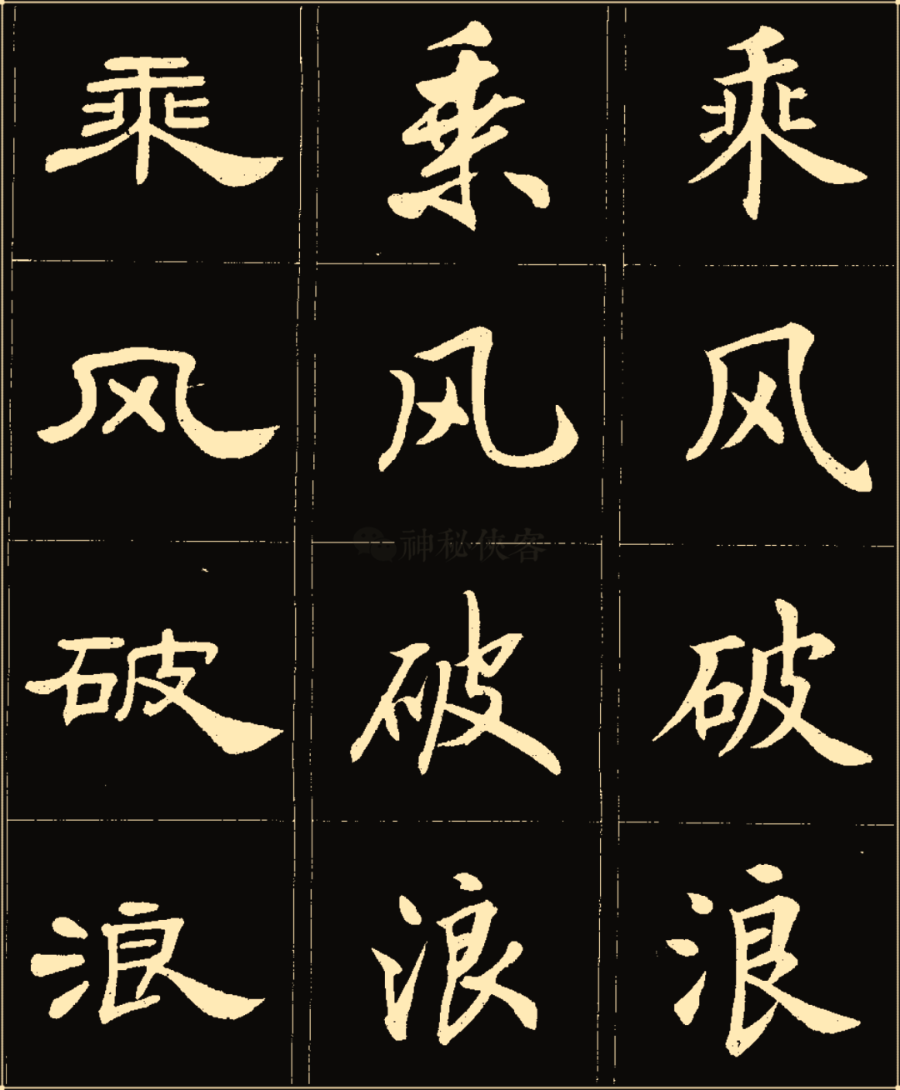 乘 乘 乘
风 风 风
神秘侠客
破 破 破
浪 浪 浪